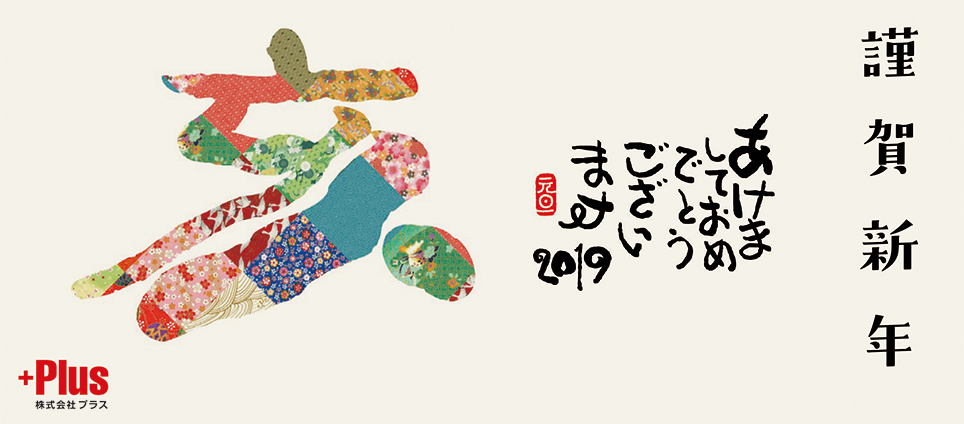 謹賀新年
あけま
しておめ
でとう
ござい
ます
2019
元旦
亥
+Plus
株式会社プラス